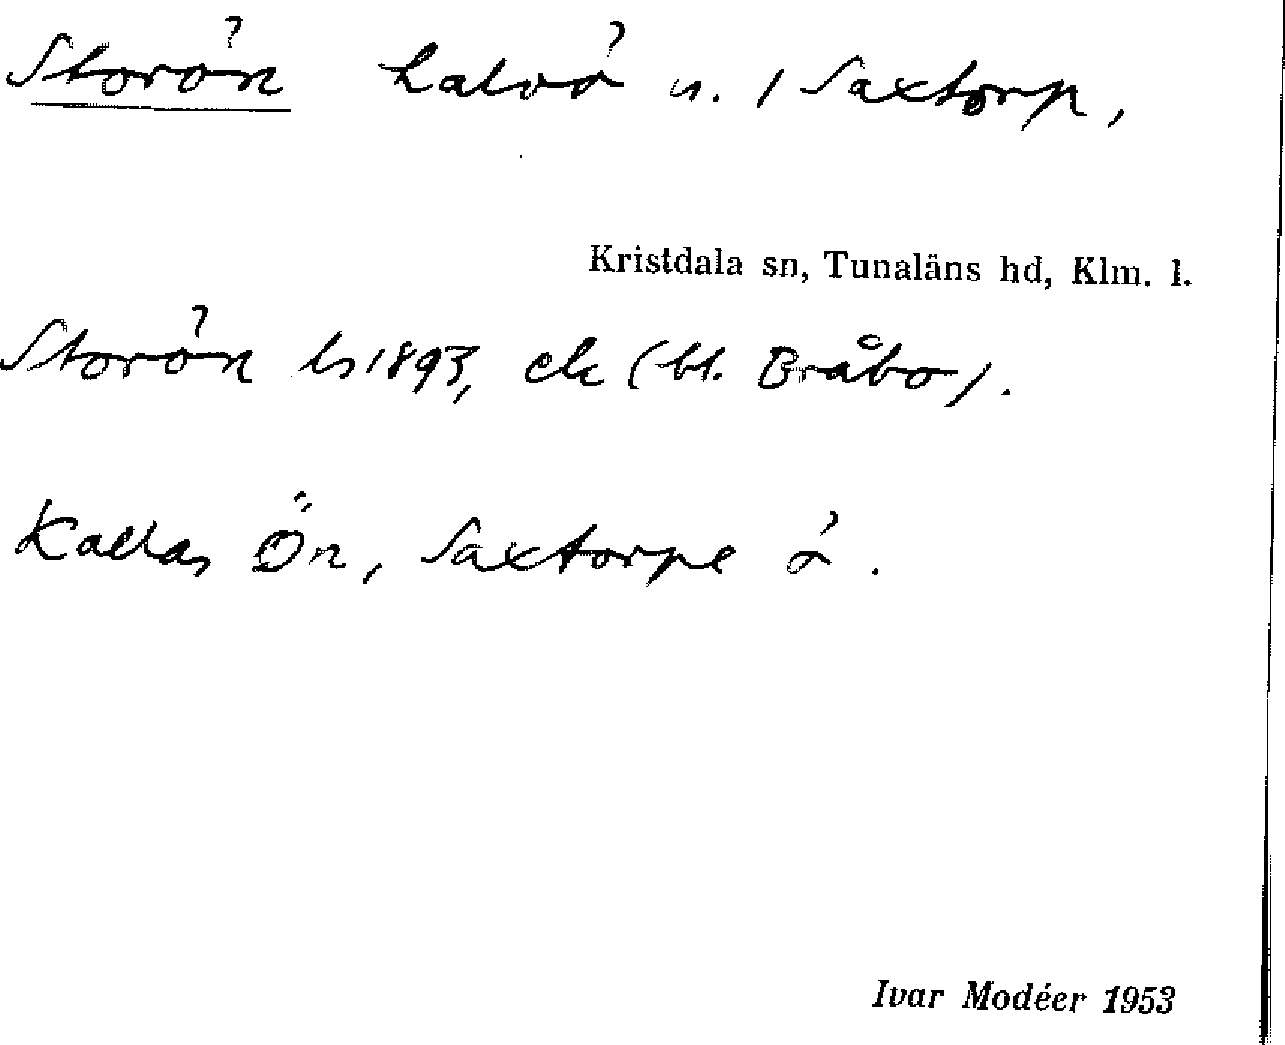 Storön halvö u. / Saxtorp,
Kristdala sn, Tunaläns hd, Klm. l.
Storön 1893, ek (bl. Bråbo).
Kallas Ön, Saxtorpe ö.
Ivar Modéer 1953